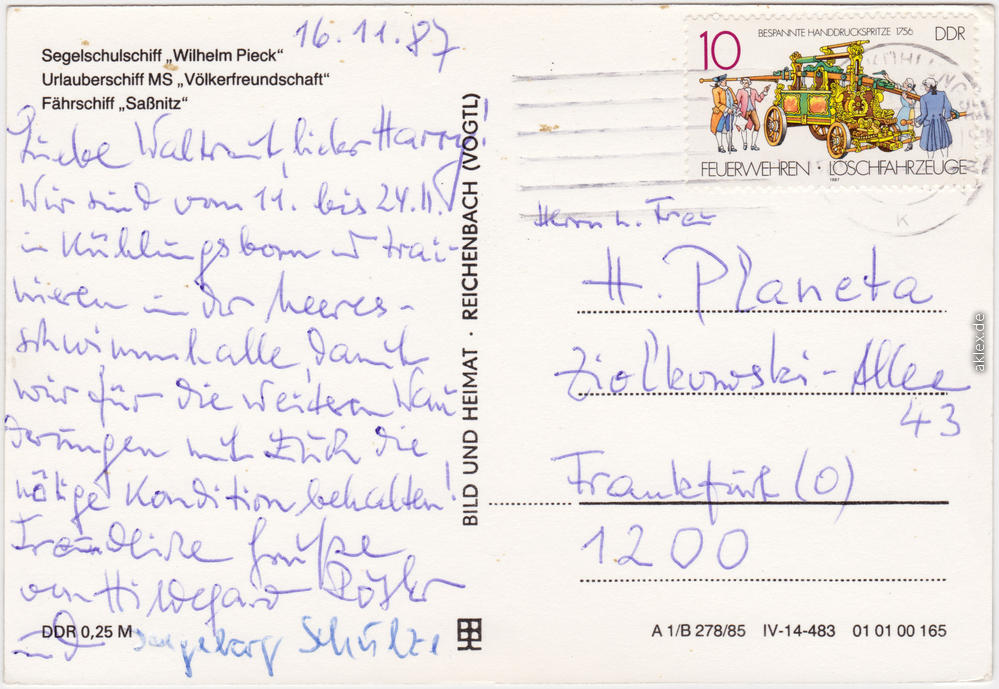 16.11.87
Segelschulschiff „Wilhelm Pieck“
Urlauberschiff MS „Völkerfreundschaft“
Fährschiff „Saßnitz“
Liebe Waltraut, lieber Harry!
Wir sind vom 11. bis 24.11.
in Kühlungsborn u trai-
nieren in der Meeres-
schwimmhalle, damit
wir für die weiteren Wan
derungen mit Euch die
nötige Kondition behalten!
Freundliche Grüße
von Hildegard Rösler
und Ingeborg Schulze
DDR 0,25 M
BILD UND HEIMAT · REICHENBACH (VOGTL)
10
BESPANNTE HANDDRUCKSPRITZE 1756
DDR
FEUERWEHREN · LÖSCHFAHRZEUGE
1987
K
Herrn u. Frau
H. Planeta
Ziolkowski-Allee
43
Frankfurt (O)
1200
A 1/B 278/85 IV-14-483 01 01 00 165
aklex.de